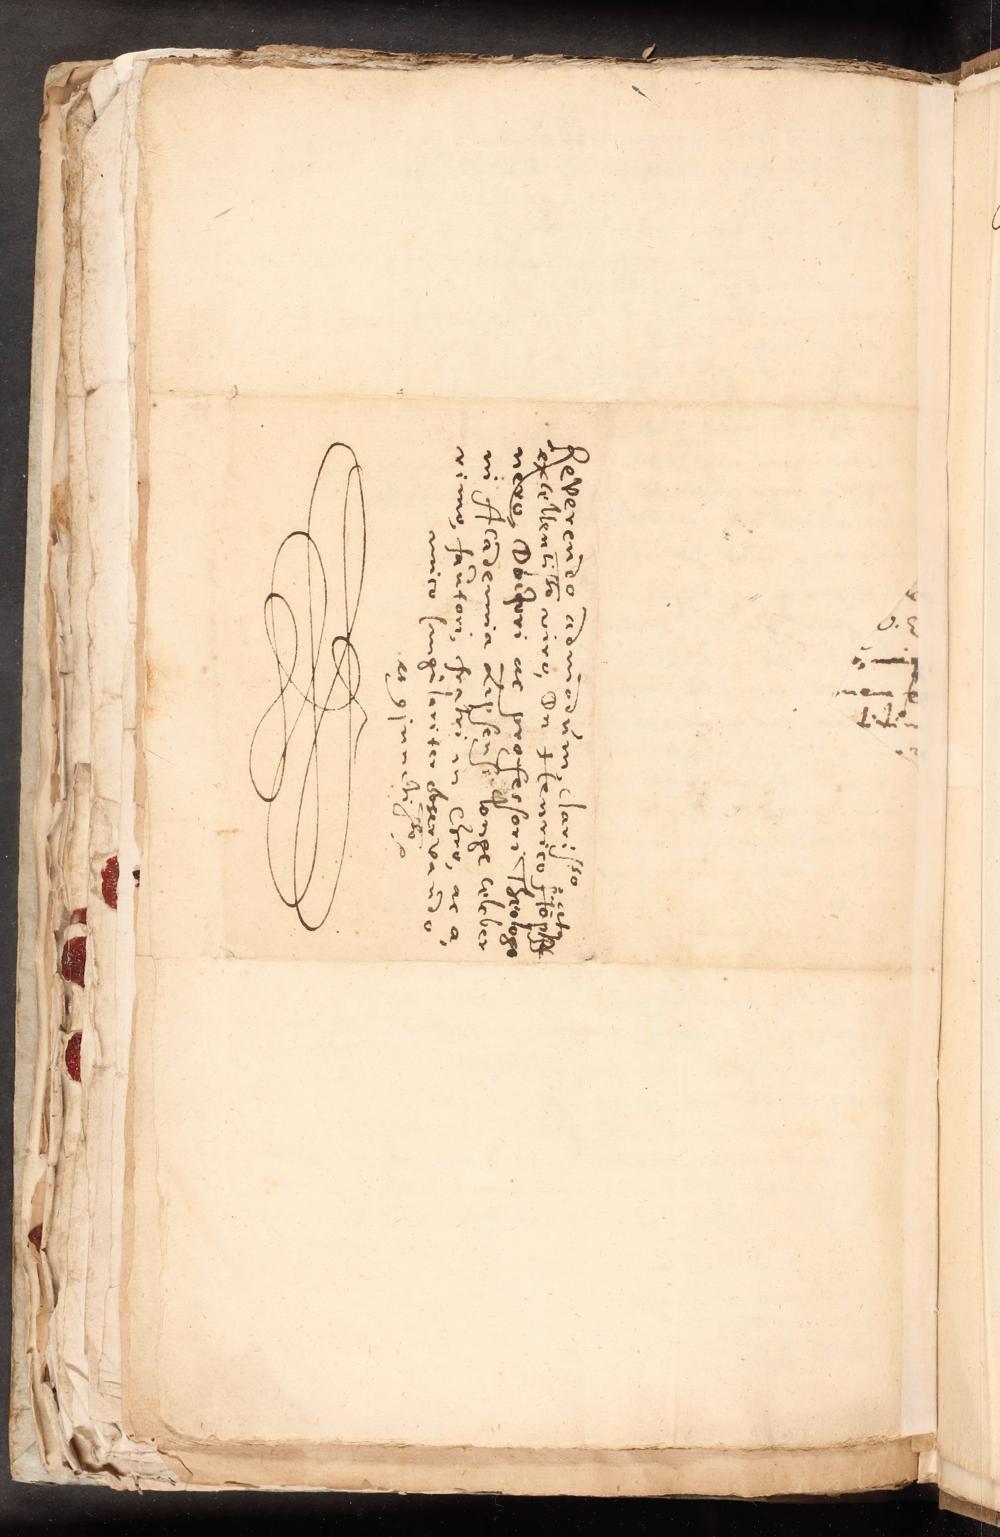 Reverendo admodum, clarisso atq
excellentisso viro, Dn Henrico Höpff
nero, Doctori ac professori Theologo
in Academia Lipsensi longe celeber
rimo, fautori, fratri in Chro, ac a,
mico singulariter observando.